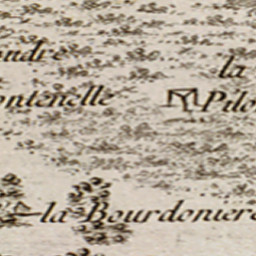 oudre
la
ontenelle
Pilo
la Bourdoniere